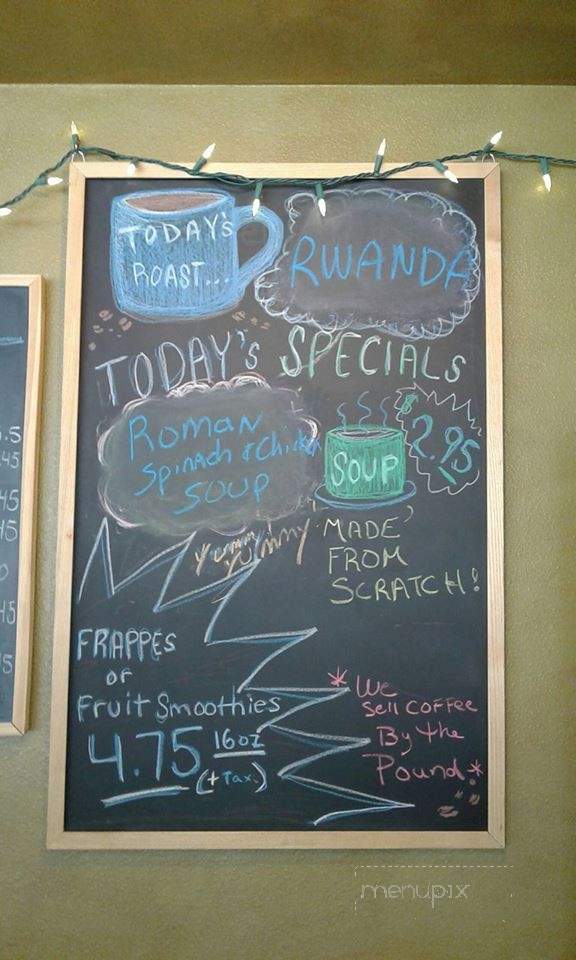 TODAY'S
ROAST...
RWANDA
TODAY'S SPECIALS
ROMAN
Spinach & Chicken
SOUP
SOUP
$2.95
Yummy!
Yummy!
MADE
FROM
SCRATCH!
FRAPPES
or
Fruit Smoothies
4.75 16oz
(+ Tax.)
* We
Sell COFFEE
By the
Pound *
.5
.45
.45
.45
0
.45
.5
menupix